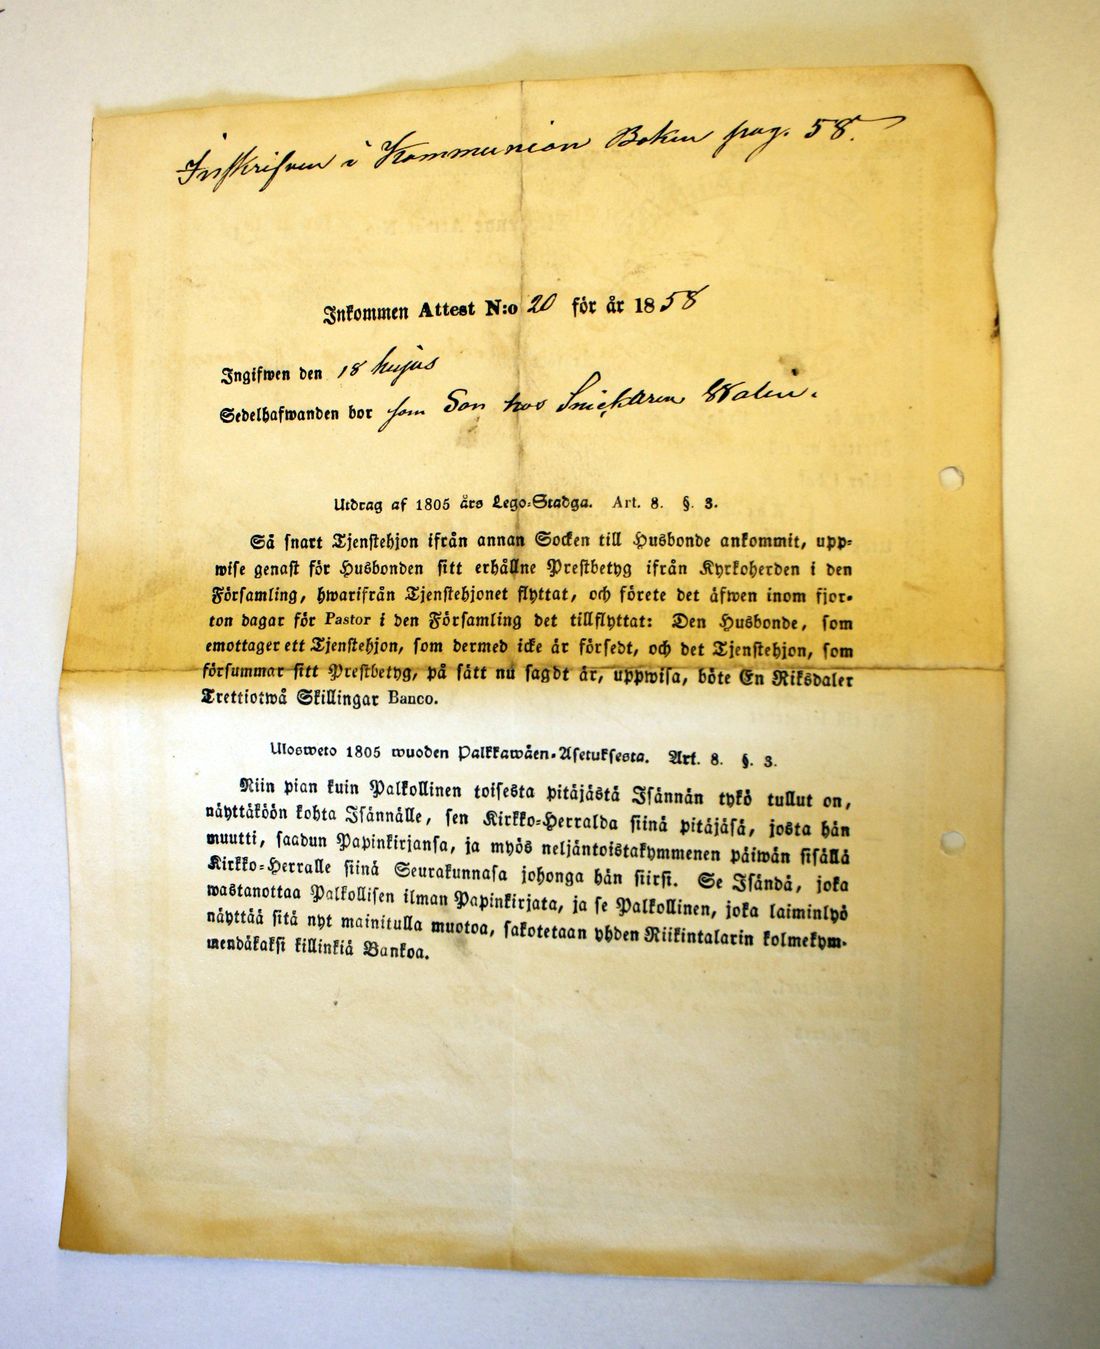 Inskrifven i Kommunion Boken pag. 58.
Inkommen Attest N:o 20 för år 1858
Ingifwen den 18 hujus
Sedelhafwanden bor som Son hos Snickaren Walin.
Utdrag af 1805 års Lego-Stadga. Art. 8. §. 3.
Så snart Tjenstehjon ifrån annan Socken till Husbonde ankommit, upp-
wise genast för Husbonden sitt erhållne Prestbetyg ifrån Kyrkoherden i den
Församling, hwarifrån Tjenstehjonet flyttat, och förete det äfwen inom fjor-
ton dagar för Pastor i den Församling det tillflyttat: Den Husbonde, som
emottager ett Tjenstehjon, som dermed icke är försedt, och det Tjenstehjon, som
försummar sitt Prestbetyg, på sätt nu sagdt är, uppwisa, böte En Riksdaler
Trettiotwå Skillingar Banco.
Ulosweto 1805 wuoden Palkkawäen-Asetuksesta. Art. 8. §. 3.
Niin pian kuin Palkollinen toisesta pitäjästä Isännän tykö tullut on,
näyttäköön kohta Isännälle, sen Kirkko-Herralda siinä pitäjäsä, josta hän
muutti, saadun Papinkirjansa, ja myös neljäntoistakymmenen päiwän sisällä
Kirkko-Herralle siinä Seurakunnasa johonga hän siirsi. Se Isändä, joka
wastanottaa Palkollisen ilman Papinkirjata, ja se Palkollinen, joka laiminlyö
näyttää sitä nyt mainitulla muotoa, sakotetaan yhden Riikintalarin kolmekym-
mendäkaksi killinkiä Bankoa.